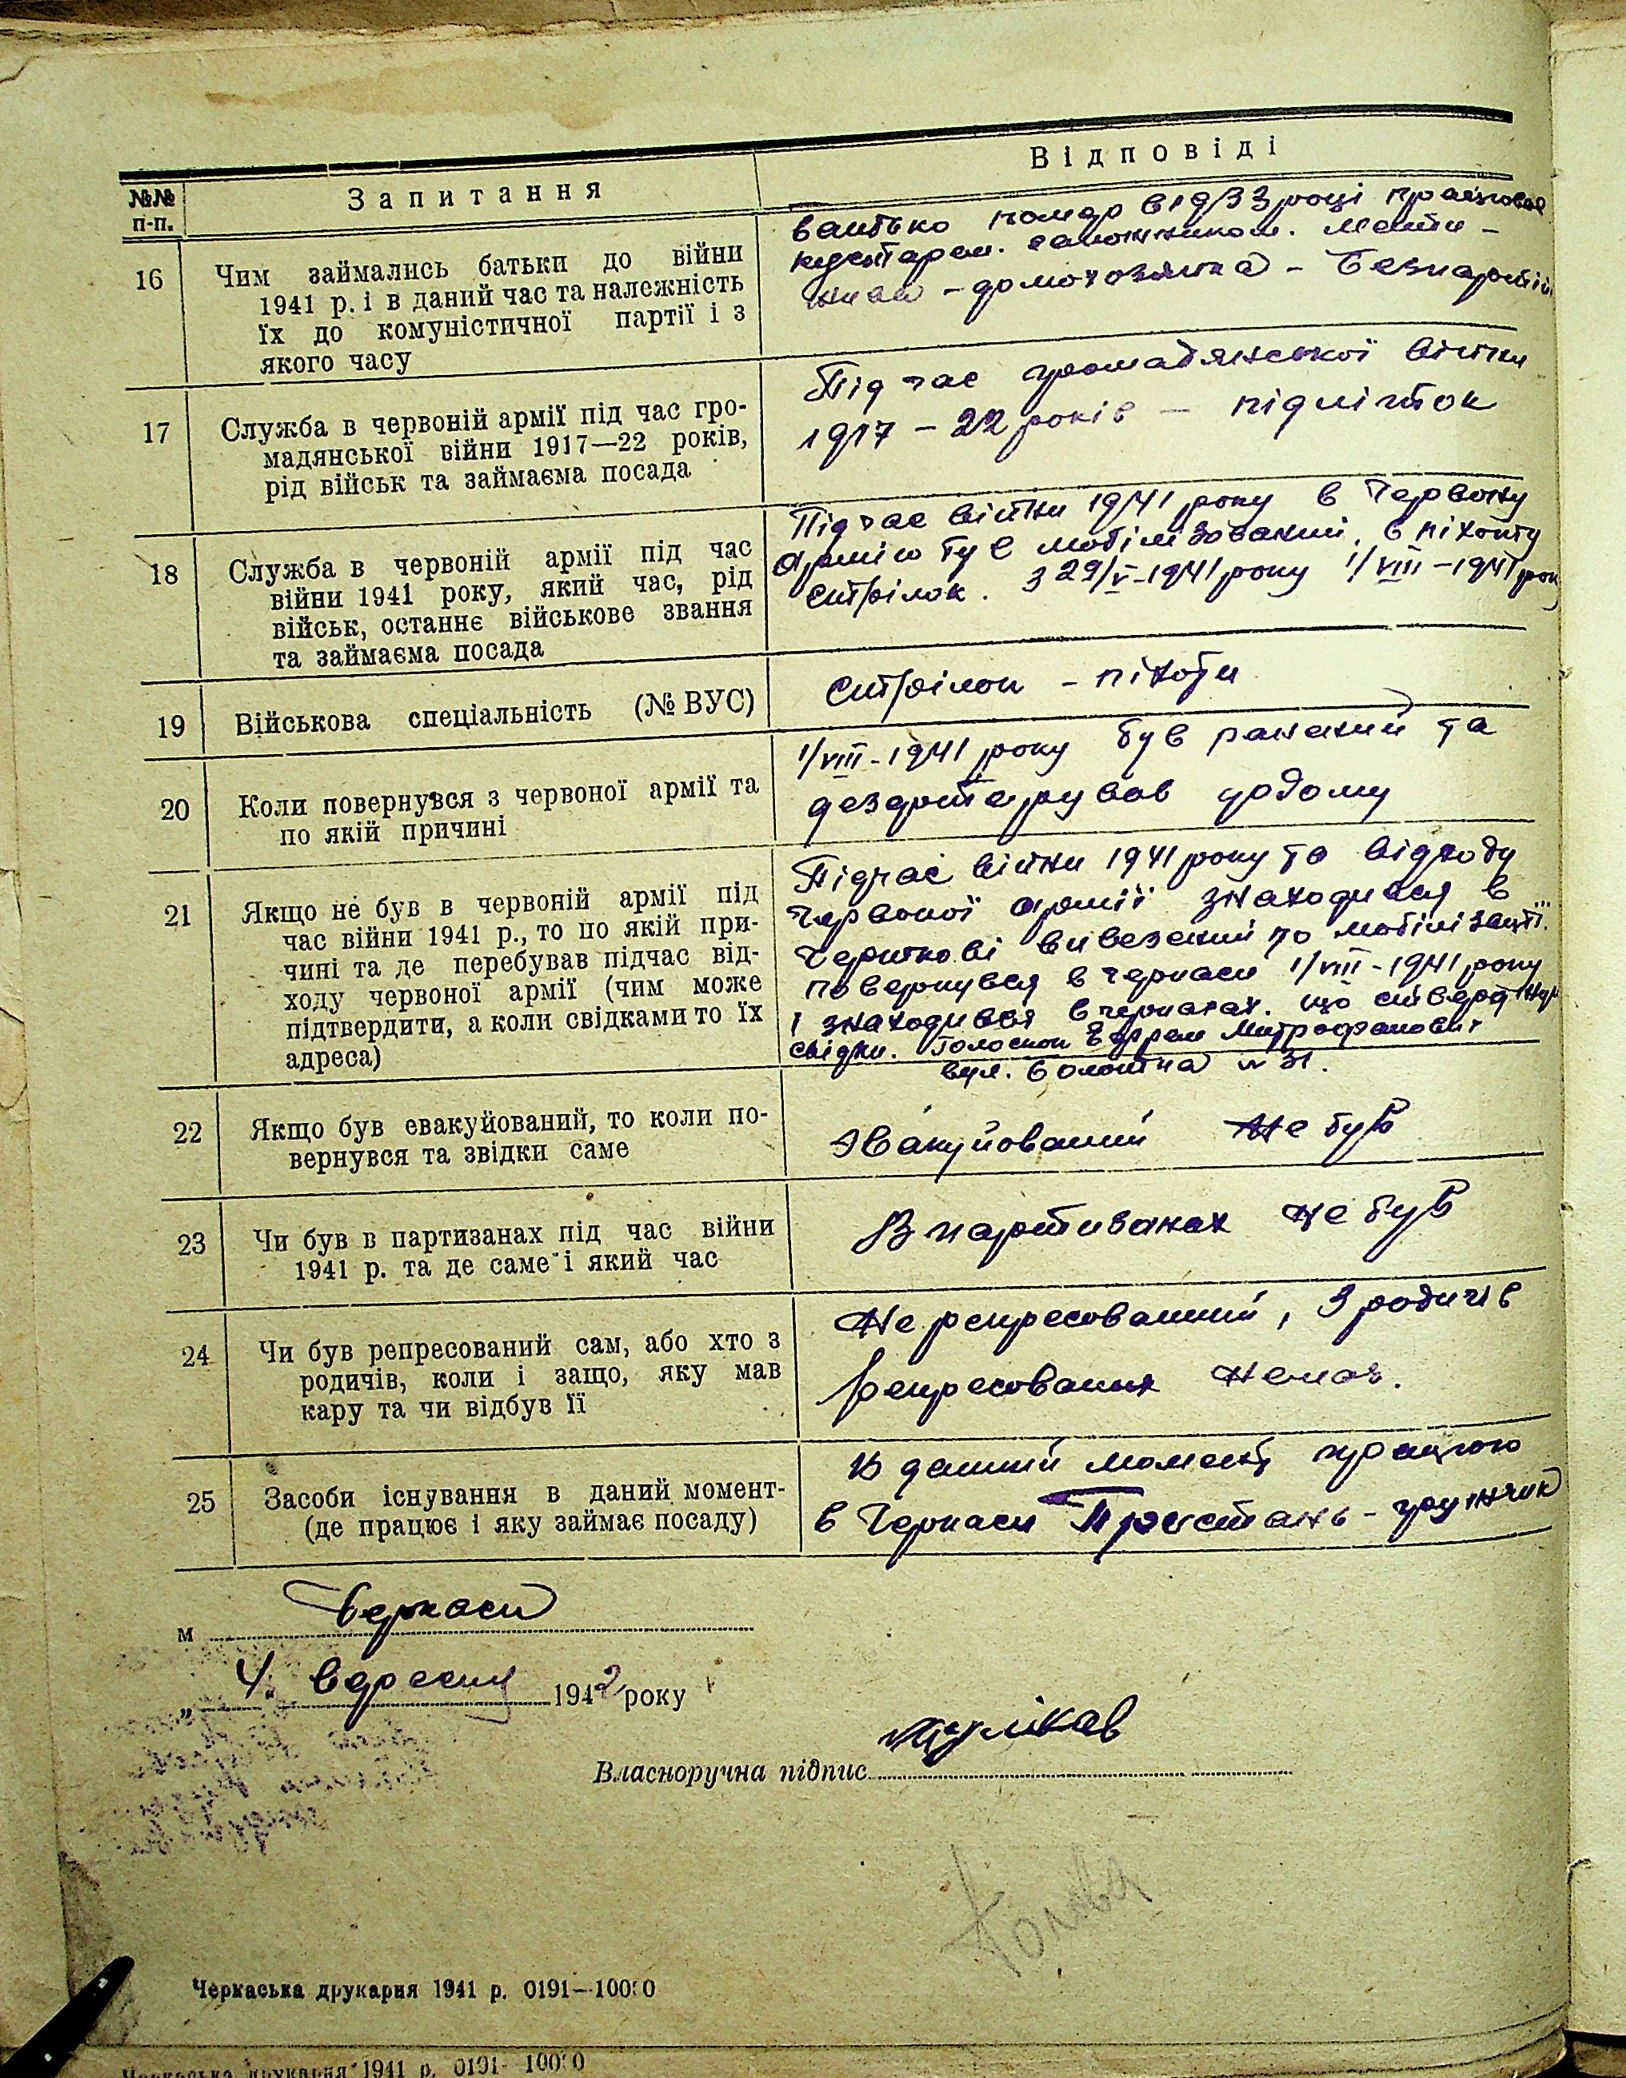 №№ п-п. Запитання Відповіді
16 Чим займались батьки до війни
1941 р. і в даний час та належність
їх до комуністичної партії і з
якого часу
батько помер в 1933 році працював
мати -
домохозяйка - Безпартій
17 Служба в червоній армії під час гро-
мадянської війни 1917—22 років,
рід військ та займаєма посада
Під час громадянської війни
1917 - 22 років - підліток
18 Служба в червоній армії під час
війни 1941 року, який час, рід
військ, останнє військове звання
та займаєма посада
Підчас війни 1941 року в Червону
армію був мобілізований, в піхоту
стрілок. з 29/V-1941 року 1/VIII-1941 рок
19 Військова спеціальність (№ ВУС)
стрілок - піхоти
20 Коли повернувся з червоної армії та
по якій причині
1/VIII-1941 року був ранений та
дезертирував додому
21 Якщо не був в червоній армії під
час війни 1941 р., то по якій при-
чині та де перебував підчас від-
ходу червоної армії (чим може
підтвердити, а коли свідками то їх
адреса)
Підчас війни 1941 року та відходу
червоної армії знаходився в
вивезений по мобілізації.
повернувся в Черкаси 1/VIII-1941 року
і знаходився в Черкасах. що
свідки. Митрофанович
вул. Болотна № 31.
22 Якщо був евакуйований, то коли по-
вернувся та звідки саме
Эвакуйований не був
23 Чи був в партизанах під час війни
1941 р. та де саме і який час
В партизанах не був
24 Чи був репресований сам, або хто з
родичів, коли і защо, яку мав
кару та чи відбув її
Не репресований, з родичів
репресованих немає.
25 Засоби існування в даний момент-
(де працює і яку займає посаду)
В даний момент працюю
в Черкаси Пристань - грузчик
м Черкаси
„4" вересня 1942 року
Власноручна підпис
Черкаська друкарня 1941 р. 0191—10000
Черкаська друкарня 1941 р. 0191- 10000